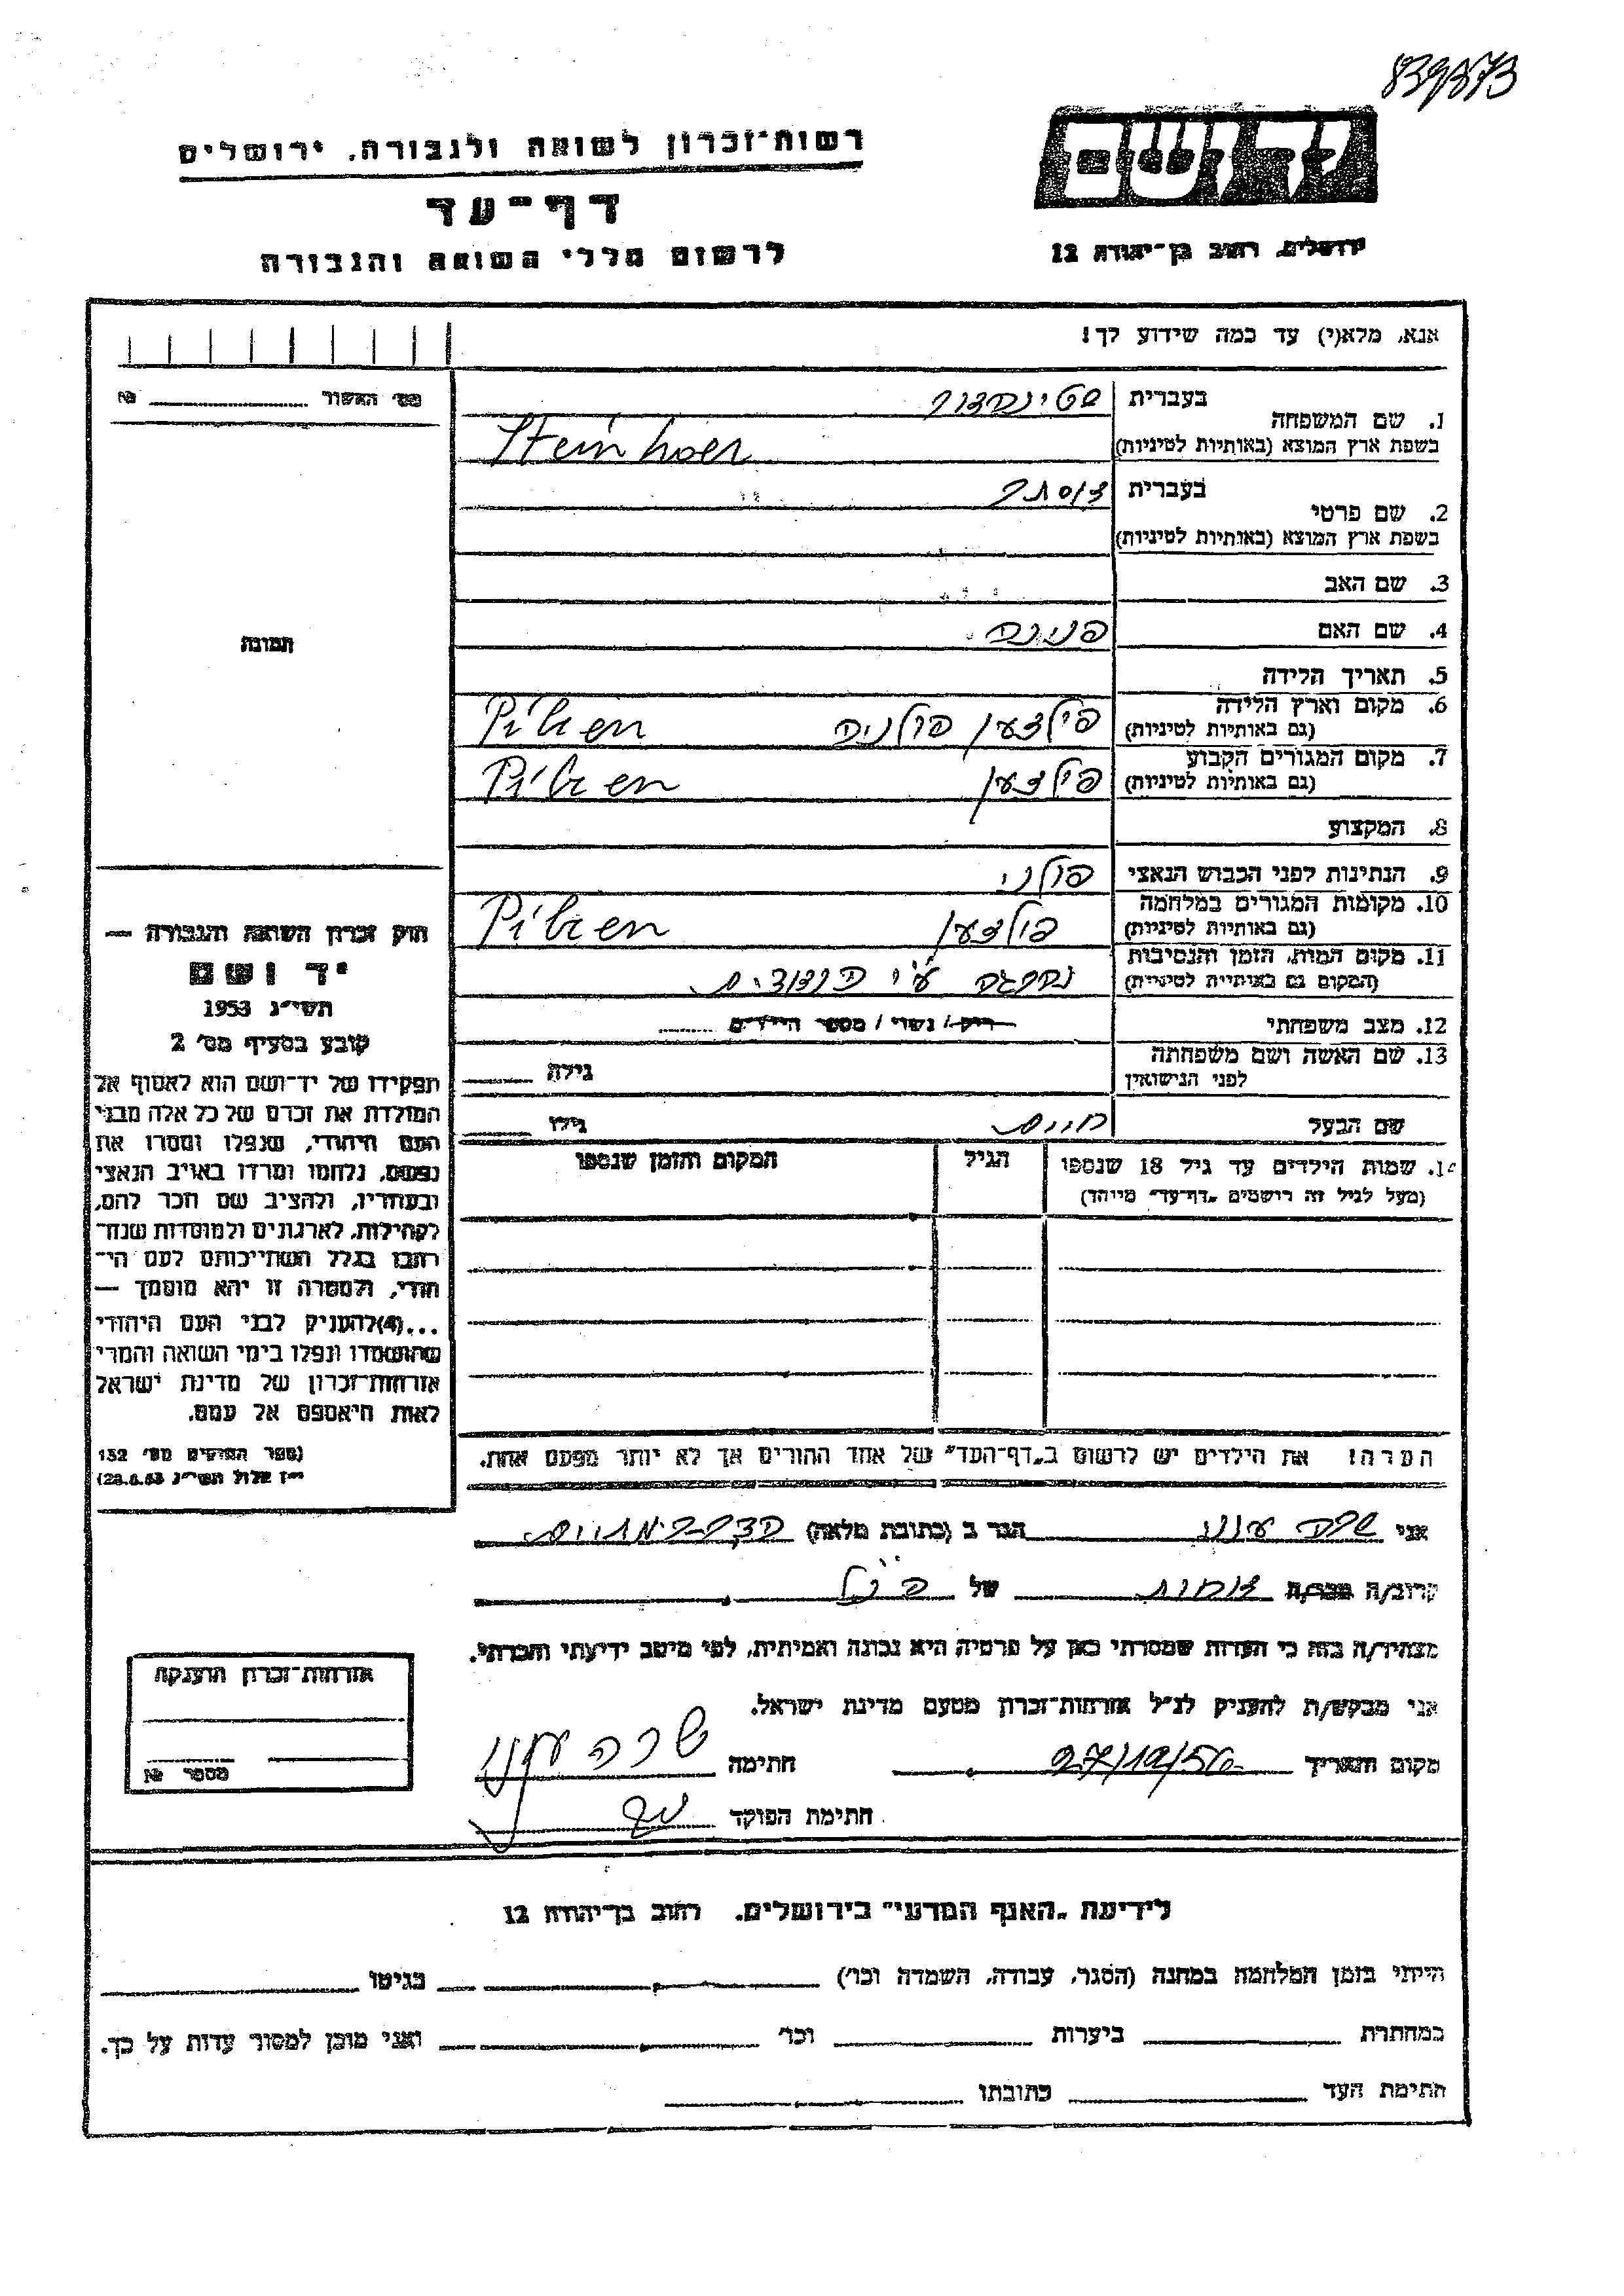 839873
יד ושם
ירושלים, רחוב בן־יהודה 12
רשות־זכרון לשואה ולגבורה, ירושלים
דף־עד
לרשום חללי השואה והגבורה
אנא, מלא(י) עד כמה שידוע לך!
מס׳ האשור № 
1. שם המשפחה
בעברית
בשפת ארץ המוצא (באותיות לטיניות)
Steinhoer
2. שם פרטי
בעברית
בשפת ארץ המוצא (באותיות לטיניות)
3. שם האב
4. שם האם
5. תאריך הלידה
6. מקום וארץ הלידה
(גם באותיות לטיניות)
פילזען פולניה Pilzen
7. מקום המגורים הקבוע
(גם באותיות לטיניות)
פילזען Pilzen
8. המקצוע
9. הנתינות לפני הכבוש הנאצי פולני
10. מקומות המגורים במלחמה
(גם באותיות לטיניות)
פילזען Pilzen
11. מקום המות, הזמן והנסיבות
(המקום גם באותיות לטיניות)
נהרגה ע״י הנאצים
12. מצב משפחתי רווק / נשוי / מספר הילדים
13. שם האשה ושם משפחתה
לפני הנישואין
גילה
שם הבעל חיים גילו
14. שמות הילדים עד גיל 18 שנספו
(מעל לגיל זה רושמים ״דף־עד״ מיוחד)
הגיל
המקום והזמן שנספו
הערה: את הילדים יש לרשום ב״דף־העד״ של אחד ההורים אך לא יותר מפעם אחת.
תמונה
חוק זכרון השואה והגבורה —
יד ושם
תשי״ג 1953
קובע בסעיף מס׳ 2
תפקידו של יד־ושם הוא לאסוף אל
המולדת את זכרם של כל אלה מבני
העם היהודי, שנפלו ומסרו את
נפשם, נלחמו ומרדו באויב הנאצי
ובעוזריו, ולהציב שם וזכר להם,
לקהילות, לארגונים ולמוסדות שנח־
רבו בגלל השתייכותם לעם הי־
הודי, ולמטרה זו יהא מוסמך —
...(4) להעניק לבני העם היהודי
שהושמדו ונפלו בימי השואה והמרי
אזרחות־זכרון של מדינת ישראל
לאות היאספם אל עמם.
(ספר החוקים מס׳ 132
י״ז אלול תשי״ג 28.8.53)
אני שרה הגר ב (כתובת מלאה)
קרוב/ה מכר/ה של הנ״ל
מצהיר/ה בזה כי העדות שמסרתי כאן על פרטיה היא נכונה ואמיתית, לפי מיטב ידיעתי והכרתי.
אני מבקש/ת להעניק לנ״ל אזרחות־זכרון מטעם מדינת ישראל.
מקום ותאריך 27/12/56 חתימה שרה
חתימת הפוקד
אזרחות־זכרון הוענקה
מספר №
לידיעת ״האגף המדעי״ בירושלים, רחוב בן־יהודה 12
הייתי בזמן המלחמה במחנה (הסגר, עבודה, השמדה וכו׳) בגיטו
במחתרת ביערות וכו׳ ואני מוכן למסור עדות על כך.
חתימת העד כתובתו